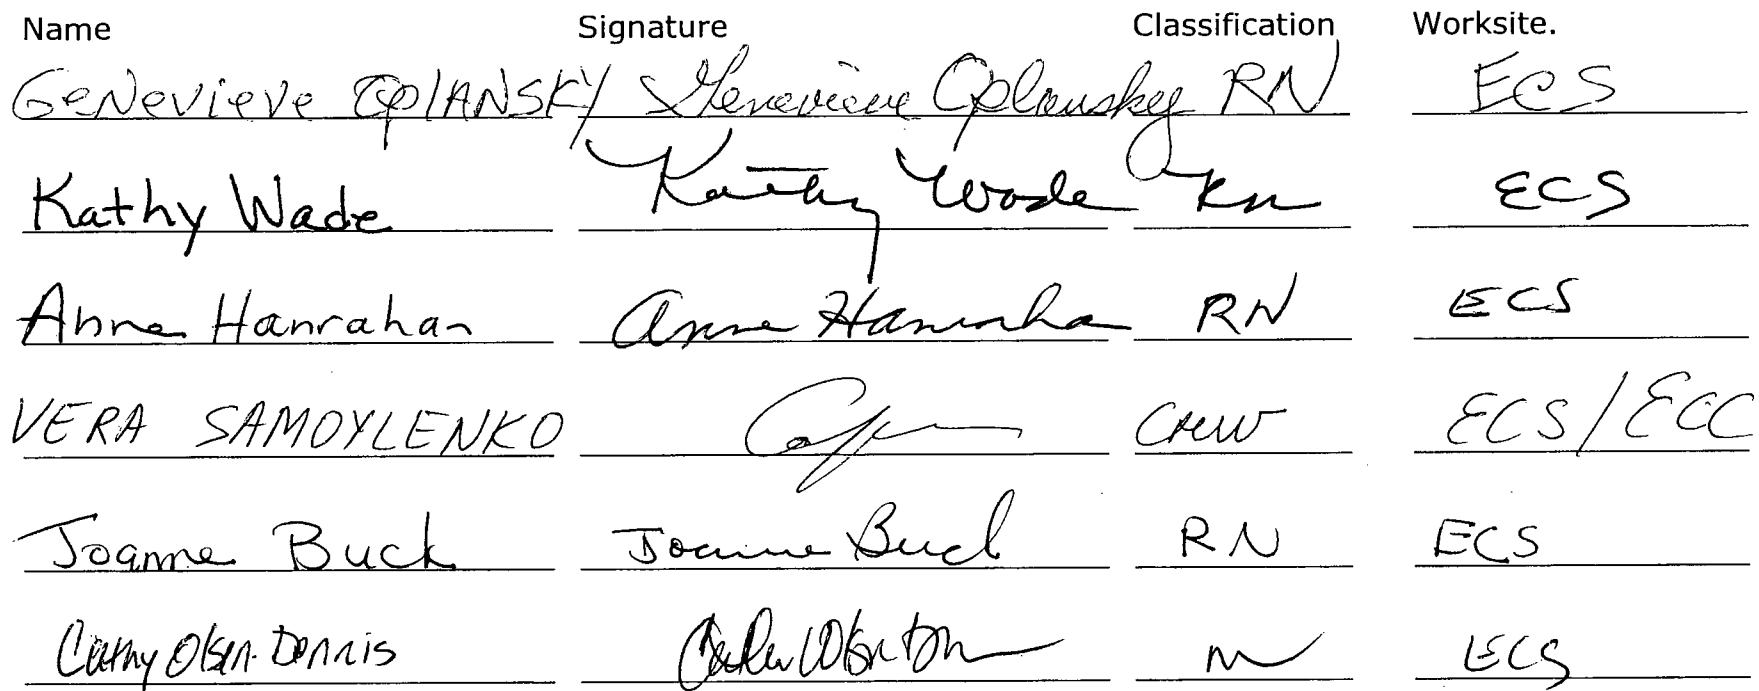 Name Signature Classification Worksite.
GeNevieve OplANSKY Genevieve Oplansky RN ECS
Kathy Wade Kathy Wade Rn ECS
Anne Hanrahan Anne Hanrahan RN ECS
VERA SAMOYLENKO ECS/ECC
Joanne Buck Joanne Buck RN ECS
Cathy Olsen-Dennis ECS